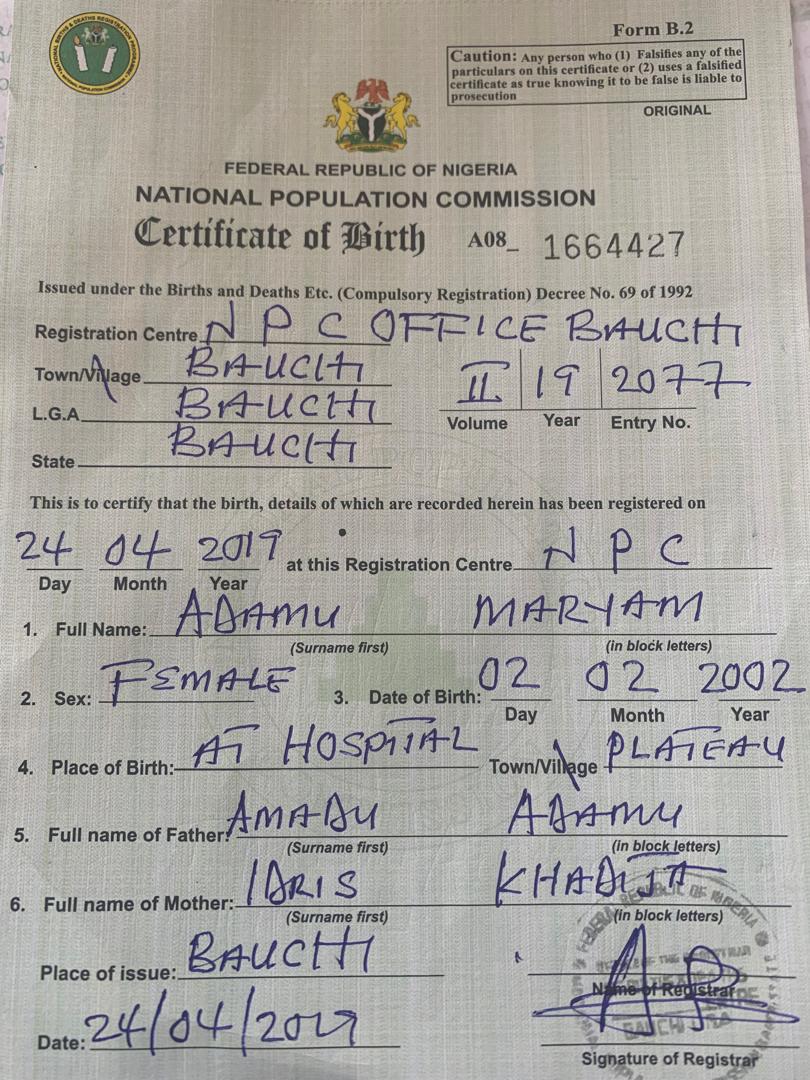 Form B.2
Caution: Any person who (1) Falsifies any of the
particulars on this certificate or (2) uses a falsified
certificate as true knowing it to be false is liable to
prosecution
ORIGINAL
FEDERAL REPUBLIC OF NIGERIA
NATIONAL POPULATION COMMISSION
Certificate of Birth A08_ 1664427
Issued under the Births and Deaths Etc. (Compulsory Registration) Decree No. 69 of 1992
Registration Centre NPC OFFICE BAUCHI
Town/Village BAUCHI
L.G.A BAUCHI
State BAUCHI
II 19 2077
Volume Year Entry No.
This is to certify that the birth, details of which are recorded herein has been registered on
24 04 2019 at this Registration Centre NPC
Day Month Year
1. Full Name: ADAMU MARYAM
(Surname first) (in block letters)
2. Sex: FEMALE 3. Date of Birth: 02 02 2002
Day Month Year
4. Place of Birth: AT HOSPITAL Town/Village PLATEAU
5. Full name of Father: AMADU ADAMU
(Surname first) (in block letters)
6. Full name of Mother: IDRIS KHADIJA
(Surname first) (in block letters)
Place of issue: BAUCHI
Name of Registrar
Date: 24/04/2019
Signature of Registrar